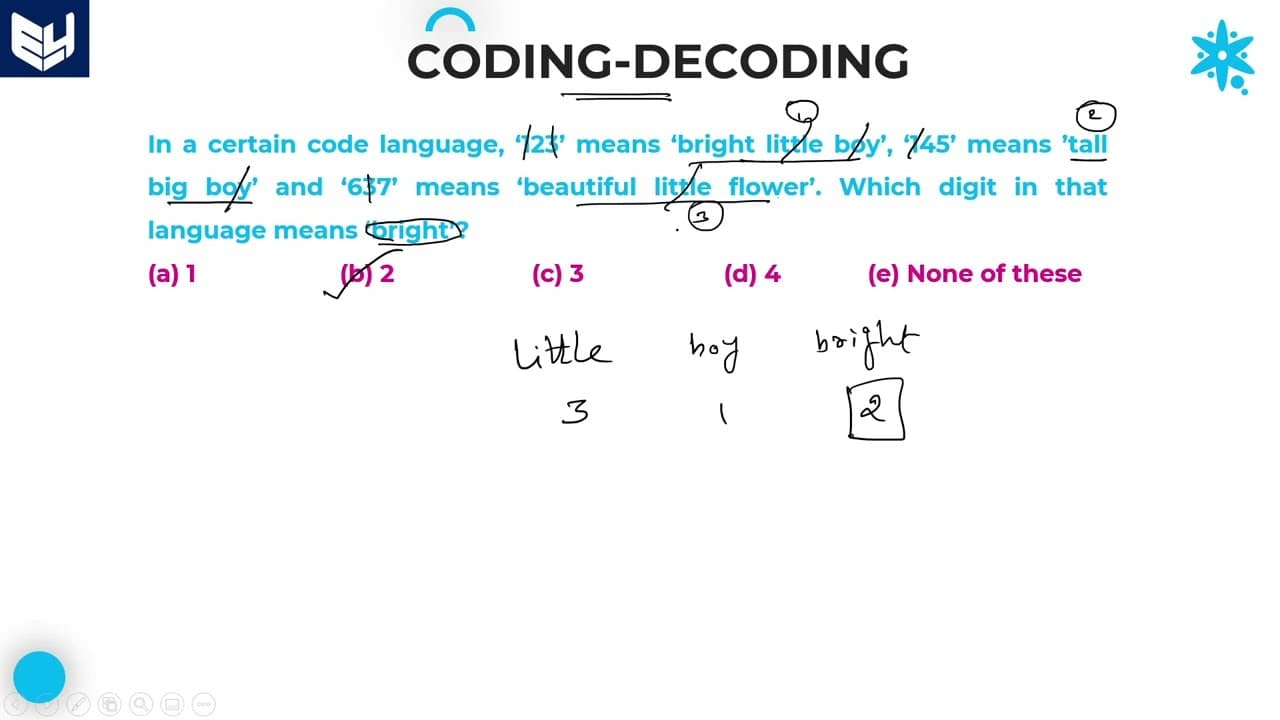 E4
CODING-DECODING
1
2
In a certain code language, ‘123’ means ‘bright little boy’, ‘145’ means ’tall
big boy’ and ‘637’ means ‘beautiful little flower’. Which digit in that
3
language means ‘bright’?
(a) 1 (b) 2 (c) 3 (d) 4 (e) None of these
Little boy bright
3 1 2